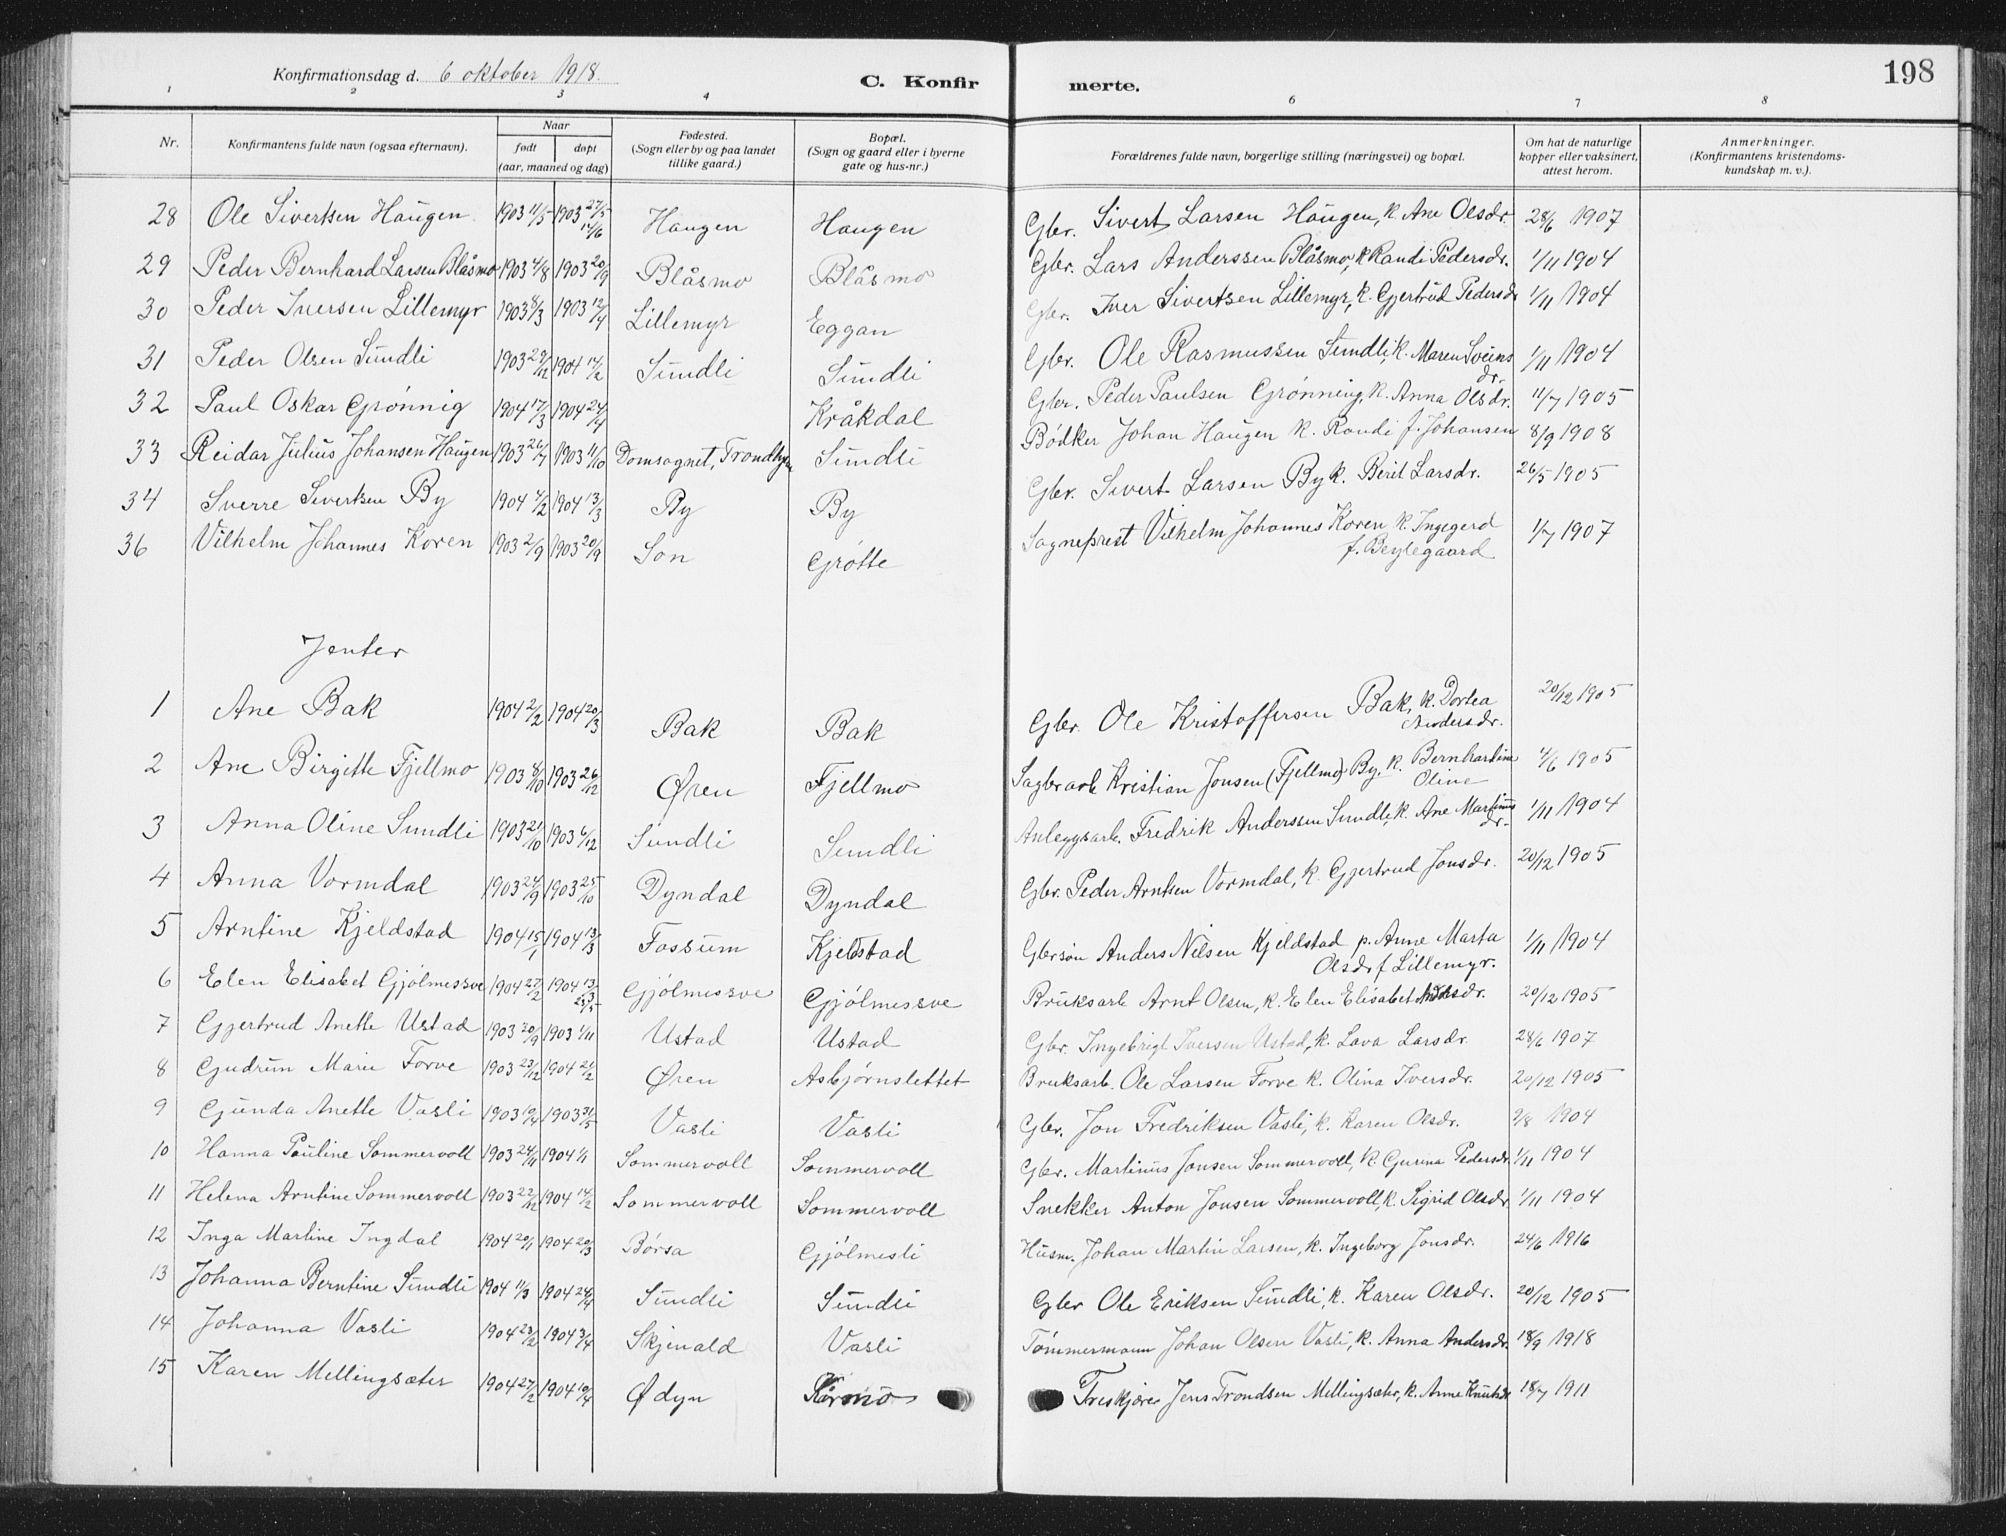 198
Konfirmationsdag d. 6 oktober 1918.
C. Konfir merte.
1 2 3 4 6 7 8
Nr. Konfirmantens fulde navn (ogsaa efternavn). Naar født døpt (aar, maaned og dag) Fødested. (Sogn eller by og paa landet tillike gaard.) Bopæl. (Sogn og gaard eller i byerne gate og hus-nr.) Forældrenes fulde navn, borgerlige stilling (næringsvei) og bopæl. Om hat de naturlige kopper eller vaksinert, attest herom. Anmerkninger. (Konfirmantens kristendoms-kundskap m. v.).
28 Ole Sivertsen Haugen 1903 11/5 1903 27/5 14/6 Haugen Haugen Gbr. Sivert Larsen Haugen, k. Ane Olsdr. 28/6 1907
29 Peder Bernhard Larsen Blåsmo 1903 4/8 1903 20/9 Blåsmo Blåsmo Gbr. Lars Anderssen Blåsmo, k Randi Pedersdr. 1/11 1904
30 Peder Iversen Lillemyr 1903 8/3 1903 12/4 Lillemyr Eggan Gbr. Iver Sivertsen Lillemyr, k. Gjertrud Pedersdr 1/11 1904
31 Peder Olsen Sundli 1903 29/12 1904 14/2 Sundli Sundli Gbr. Ole Rasmussen Sundli, k. Maren Sveins dr. 1/11 1904
32 Paul Oskar Grønnig 1904 17/3 1904 24/4 Kråkdal Gbr. Peder Paulsen Grønning, k. Anna Olsdr. 11/7 1905
33 Reidar Julius Johansen Haugen 1903 26/7 1903 11/10 Domsognet, Trondhjem Sundli Bødker Johan Haugen k. Randi f. Johansen 8/9 1908
34 Sverre Sivertsen By 1904 4/2 1904 13/3 By By Gbr. Sivert Larsen By k. Berit Larsdr. 26/5 1905
36 Vilhelm Johannes Koren 1903 2/9 1903 20/9 Son Grøtte Sogneprest Vilhelm Johannes Koren k. Ingegerd f. Beylegaard 1/7 1907
Jenter
1 Ane Bak 1904 2/2 1904 20/3 Bak Bak Gbr. Ole Kristoffersen Bak, k. Dortea Andersdr. 20/12 1905
2 Ane Birgitte Fjellmo 1903 8/10 1903 26/12 Øren Fjellmo Sagbrarb Kristian Jonsen (Fjellmo) By, k. Bernhartine Oline 4/6 1905
3 Anna Oline Sundli 1903 21/10 1903 6/12 Sundli Sundli Anleggsarb. Fredrik Anderssen Sundli, k. Ane Martinus dr. 1/11 1904
4 Anna Vormdal 1903 24/9 1903 25/10 Dyndal Dyndal Gbr. Peder Arntsen Vormdal, k. Gjertrud Jonsdr. 20/12 1905
5 Arntine Kjeldstad 1904 15/1 1904 13/3 Fossum Kjeldstad Gbrsøn Anders Nilsen Kjeldstad p. Anne Marta Olsdr f Lillemyr. 1/11 1904
6 Elen Elisabet Gjølmessve 1904 27/2 1904 13/3 Gjølmessve Gjølmessve Bruksarb Arnt Olsen, k. Elen Elisabet 20/12 1905
7 Gjertrud Anette Ustad 1903 20/9 1903 1/11 Ustad Ustad Gbr. Ingebrigt Iversen Ustad, k. Lava Larsdr. 28/6 1907
8 Gudrun Marie Forve 1903 23/12 1904 21/2 Øren Asbjørnslettet Bruksarb. Ole Larsen Forve k. Olina Iversdr. 20/12 1905
9 Gunda Anette Vasli 1903 19/4 1903 31/5 Vasli Vasli Gbr. Jon Fredriksen Vasli, k. Karen Olsdr. 9/8 1904
10 Hanna Pauline Sommervoll 1903 24/11 1904 1/1 Sommervoll Sommervoll Gbr. Martinus Jonsen Sommervoll, k. Gurina Pedersdr. 1/11 1904
11 Helena Arntine Sommervoll 1903 22/12 1904 14/2 Sommervoll Sommervoll Snekker Anton Jonsen Sommervoll, k. Sigrid Olsdr. 1/11 1904
12 Inga Martine Ingdal 1904 20/1 1904 20/3 Børsa Gjølmesli Husm. Johan Martin Larsen, k. Ingeborg Jonsdr. 24/6 1916
13 Johanna Berntine Sundli 1904 11/3 1904 24/4 Sundli Sundli Gbr Ole Eriksen Sundli, k. Karen Olsdr. 20/12 1905
14 Johanna Vasli 1904 23/2 1904 3/4 Skjenald Vasli Tømmermann Johan Olsen Vasli, k. Anna Andersdr. 18/9 1918
15 Karen Mellingsæter 1904 27/2 1904 10/4 Ø dyn Træskjærer Jens Trondsen Mellingsæter, k. Anne Knutsdr 18/7 1911